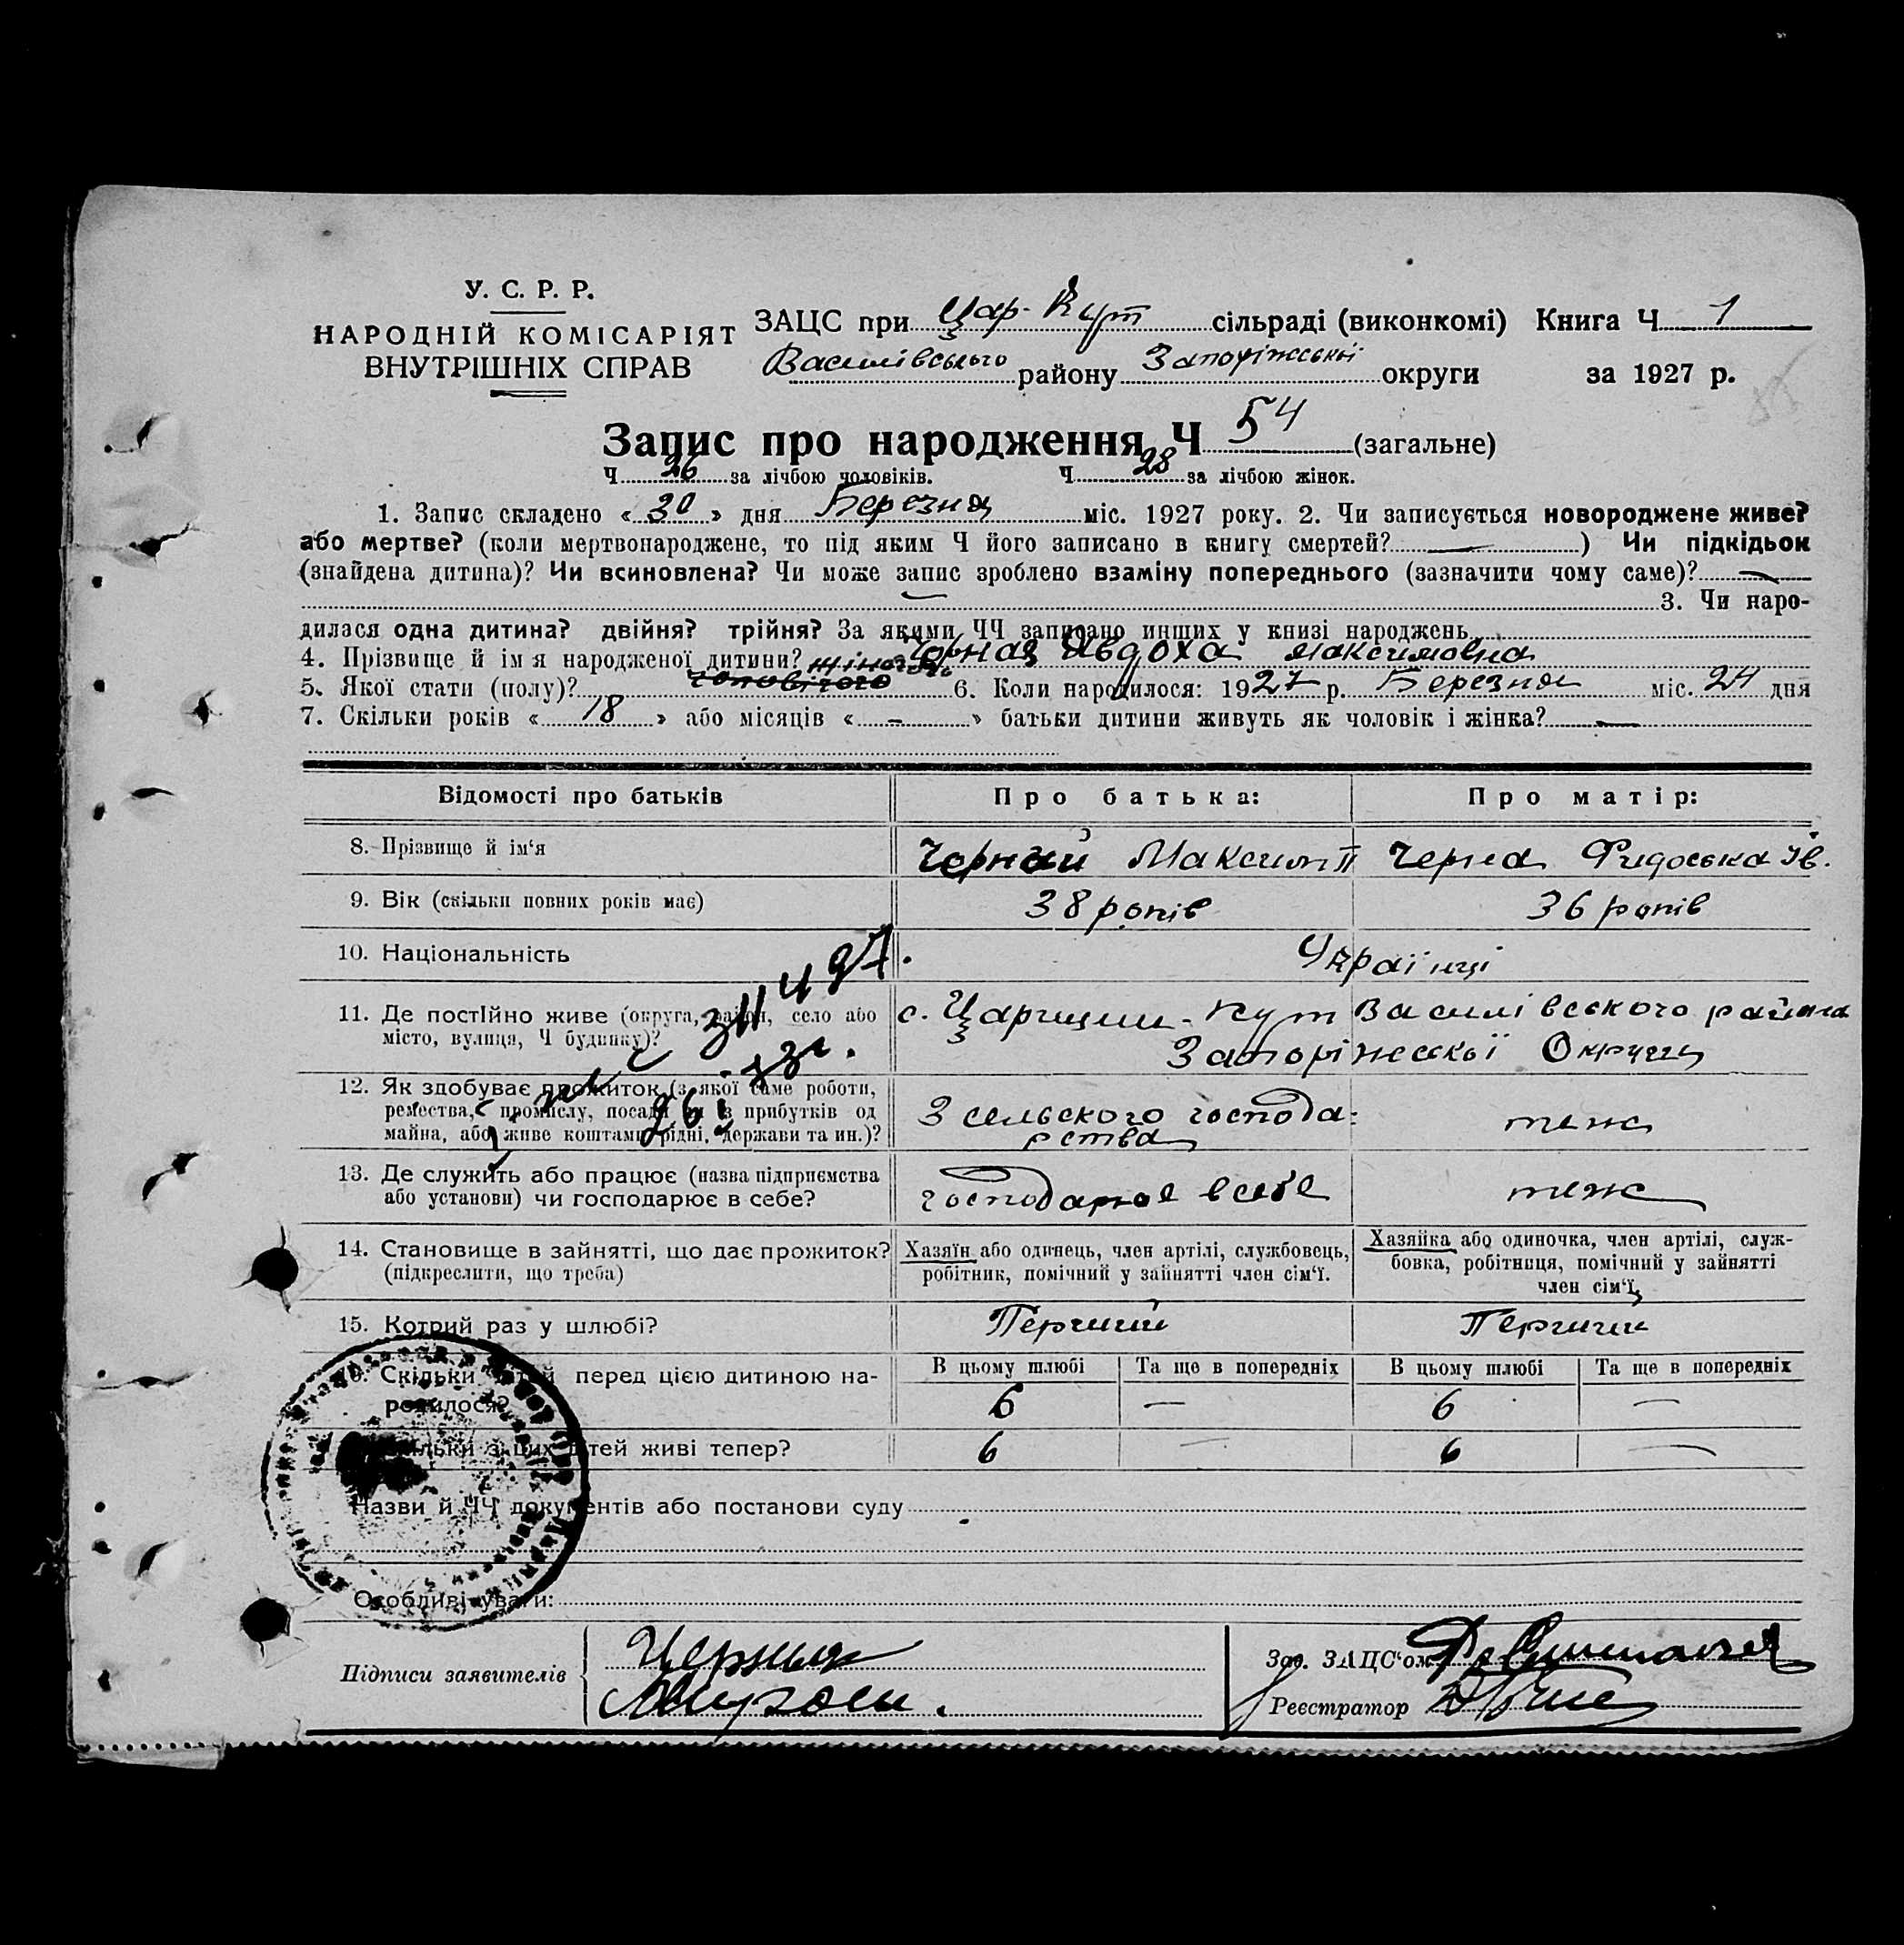 У. С. Р. Р.
НАРОДНІЙ КОМІСАРІЯТ
ВНУТРІШНІХ СПРАВ
ЗАЦС при Цар-Кут сільраді (виконкомі) Книга Ч 1
Василівського району Запоріжської округи за 1927 р.
Запис про народження Ч 54 (загальне)
Ч 26 за лічбою чоловіків. Ч 28 за лічбою жінок.
1. Запис складено « 30 » дня Березня міс. 1927 року. 2. Чи записується новороджене живе?
або мертве? (коли мертвонароджене, то під яким Ч його записано в книгу смертей? — ) Чи підкідьок
(знайдена дитина)? Чи всиновлена? Чи може запис зроблено взаміну попереднього (зазначити чому саме)? —
3. Чи наро-
дилася одна дитина? двійня? трійня? За якими ЧЧ записано инших у книзі народжень
4. Прізвище й ім'я народженої дитини? Чорная Явдоха Максимовна
5. Якої стати (полу)? чоловічого жіночого 6. Коли народилося: 1927 р. Березня міс. 24 дня
7. Скільки років « 18 » або місяців « – » батьки дитини живуть як чоловік і жінка? —
Відомості про батьків Про батька: Про матір:
8. Прізвище й ім'я Черний Максим П Черна Фидоська Ів.
9. Вік (скільки повних років має) 38 років 36 років
10. Національність Українці
11. Де постійно живе (округа, район, село або с. Царицин-Кут Василівського района
місто, вулиця, Ч будинку)? Запоріжської Округи
12. Як здобуває прожиток (з якої саме роботи,
ремества, промислу, посади чи з прибутків од З сельского господа- теж
майна, або живе коштами рідні, держави та ин.)? рства
13. Де служить або працює (назва підприємства
або установи) чи господарює в себе? господарює в себе теж
14. Становище в зайнятті, що дає прожиток? Хазяїн або одинець, член артілі, службовець, Хазяйка або одиночка, член артілі, служ-
(підкреслити, що треба) робітник, помічний у зайнятті член сім'ї. бовка, робітниця, помічний у зайнятті
член сім'ї.
15. Котрий раз у шлюбі? Перчий Перчий
16. Скільки дітей перед цією дитиною на- В цьому шлюбі Та ще в попередніх В цьому шлюбі Та ще в попередніх
родилося? 6 — 6 —
Скільки з цих дітей живі тепер? 6 — 6 —
Назви й ЧЧ документів або постанови суду
Особливі уваги:
Підписи заявителів
Зав. ЗАЦС'ом
Реєстратор